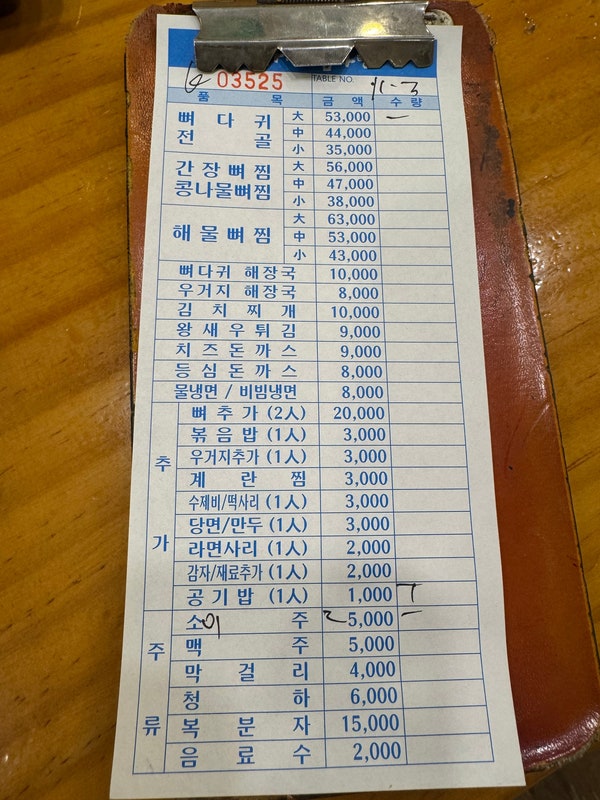 03525 TABLE NO. 11-3
품 목 금 액 수 량
뼈 다 귀 전 골 大 53,000 一
中 44,000
小 35,000
간 장 뼈 찜 콩나물뼈찜 大 56,000
中 47,000
小 38,000
해 물 뼈 찜 大 63,000
中 53,000
小 43,000
뼈다귀 해장국 10,000
우거지 해장국 8,000
김 치 찌 개 10,000
왕 새 우 튀 김 9,000
치 즈 돈 까 스 9,000
등 심 돈 까 스 8,000
물냉면 / 비빔냉면 8,000
추 가
뼈 추 가 (2人) 20,000
볶 음 밥 (1人) 3,000
우거지추가 (1人) 3,000
계 란 찜 3,000
수제비/떡사리 (1人) 3,000
당면/만두 (1人) 3,000
라면사리 (1人) 2,000
감자/재료추가 (1人) 2,000
공 기 밥 (1人) 1,000
주 류
소 주 5,000 一
맥 주 5,000
막 걸 리 4,000
청 하 6,000
복 분 자 15,000
음 료 수 2,000